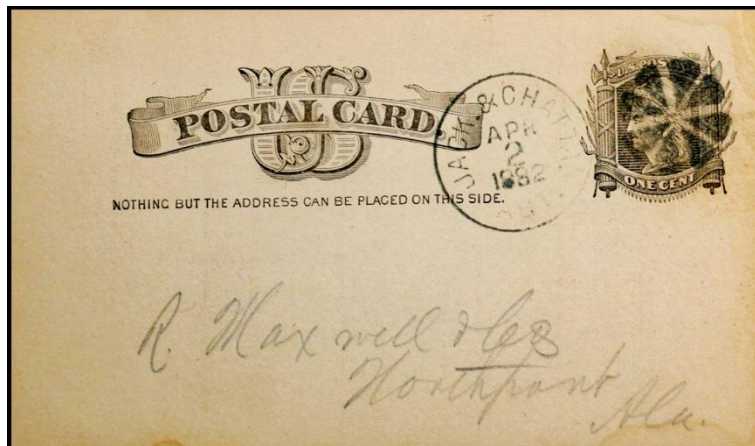 US
POSTAL CARD
NOTHING BUT THE ADDRESS CAN BE PLACED ON THIS SIDE.
JACK. & CHATTA.
APR
2
1882
U.S. POS
ONE CENT
R. Maxwell & Co
Northport
Ala.